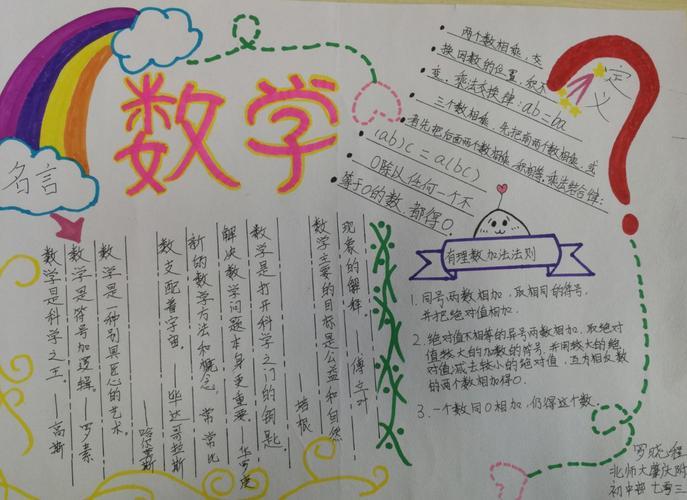 数学
名言
数学是科学之王。——高斯
数学是符号加逻辑。——罗素
数学是一种别具匠心的艺术。
——哈尔莫斯
数支配着宇宙。——毕达哥拉斯
新的数学方法和概念，常常比
解决数学问题本身更重要。——华罗庚
数学是打开科学之门的钥匙
——培根
数学主要的目标是公益和自然
现象的解释 ——傅立叶
定义
两个数相乘，交
换因数的位置，积不
变。乘法交换律：ab=ba
三个数相乘，先把前两个数相乘，或
者先把后面两个数相乘，积相等。乘法结合律：
(ab)c=a(bc)
0除以任何一个不
等于0的数，都得0.
有理数加法法则
1.同号两数相加，取相同的符号，
并把绝对值相加
2.绝对值不相等的异号两数相加，取绝对
值较大的加数的符号，并用较大的绝
对值减去较小的绝对值，互为相反数
的两个数相加得0.
3.一个数同0相加，仍得这个数。
北师大肇庆附